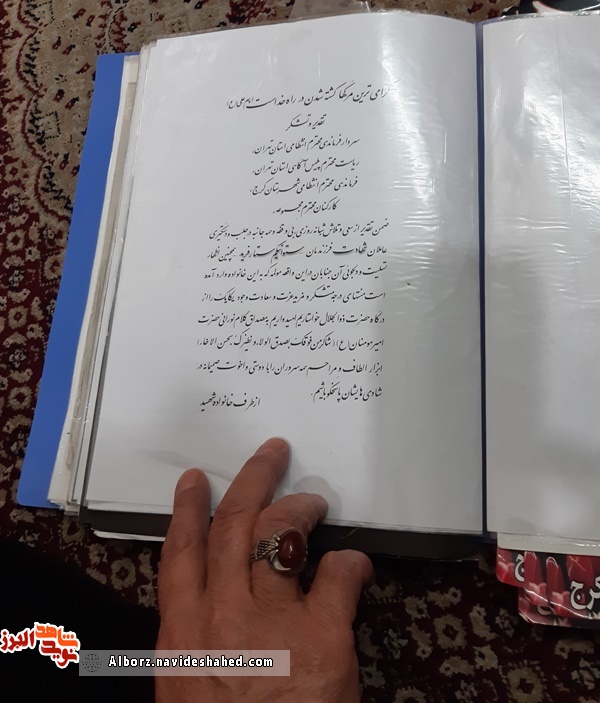 گرامی ترین مرگها کشته شدن در راه خداست (امام علی (ع))
تقدیر و تشکر
سردار فرماندهی محترم انتظامی استان تهران،
ریاست محترم پلیس آگاهی استان تهران،
فرماندهی محترم انتظامی شهرستان کرج،
کارکنان محترم مجموعه،
ضمن تقدیر از سعی و تلاش شبانه روزی، بی وقفه و همه جانبه در جلب و دستگیری
عاملان شهادت فرزندمان ستار فرید همچنین اظهار
تسلیت و دلجوئی آن جنابان در این واقعه مولمه که به این خانواده وارد آمده
است منتهای درجه تشکر و مزید عزت و سعادت وجود یکایک را از
درگاه حضرت ذوالجلال خواستاریم امیدواریم به مصداق کلام نورانی حضرت
امیر مومنان (ع) اشکر من فوقک بصدق الولاء و نظیرک بحسن الاخاء
ابزار الطاف و مراحم همه سروران را با دوستی و اخوت صمیمانه در
شادی هایشان پاسخگو باشیم.
از طرف خانواده شهید
کرج
نوید شاهد البرز
Alborz.navideshahed.com